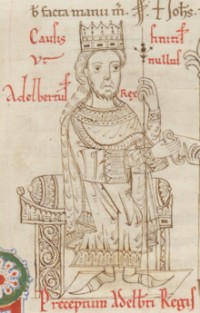 facta manu
Caulis finiti
ut nullus
Adelbertus Rex
Preceptum Adelbti Regis